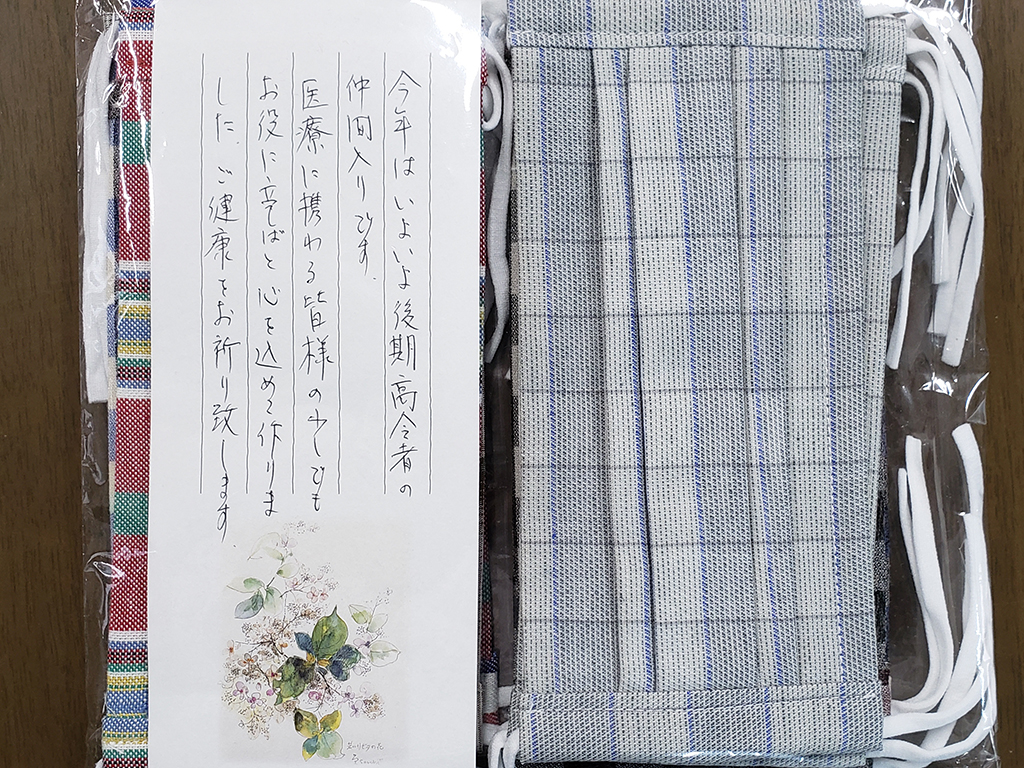 今年はいよいよ後期高令者の
仲間入りです.
医療に携わる皆様の少しでも
お役に立てばと心を込めて作りま
した. ご健康をお祈り致します.